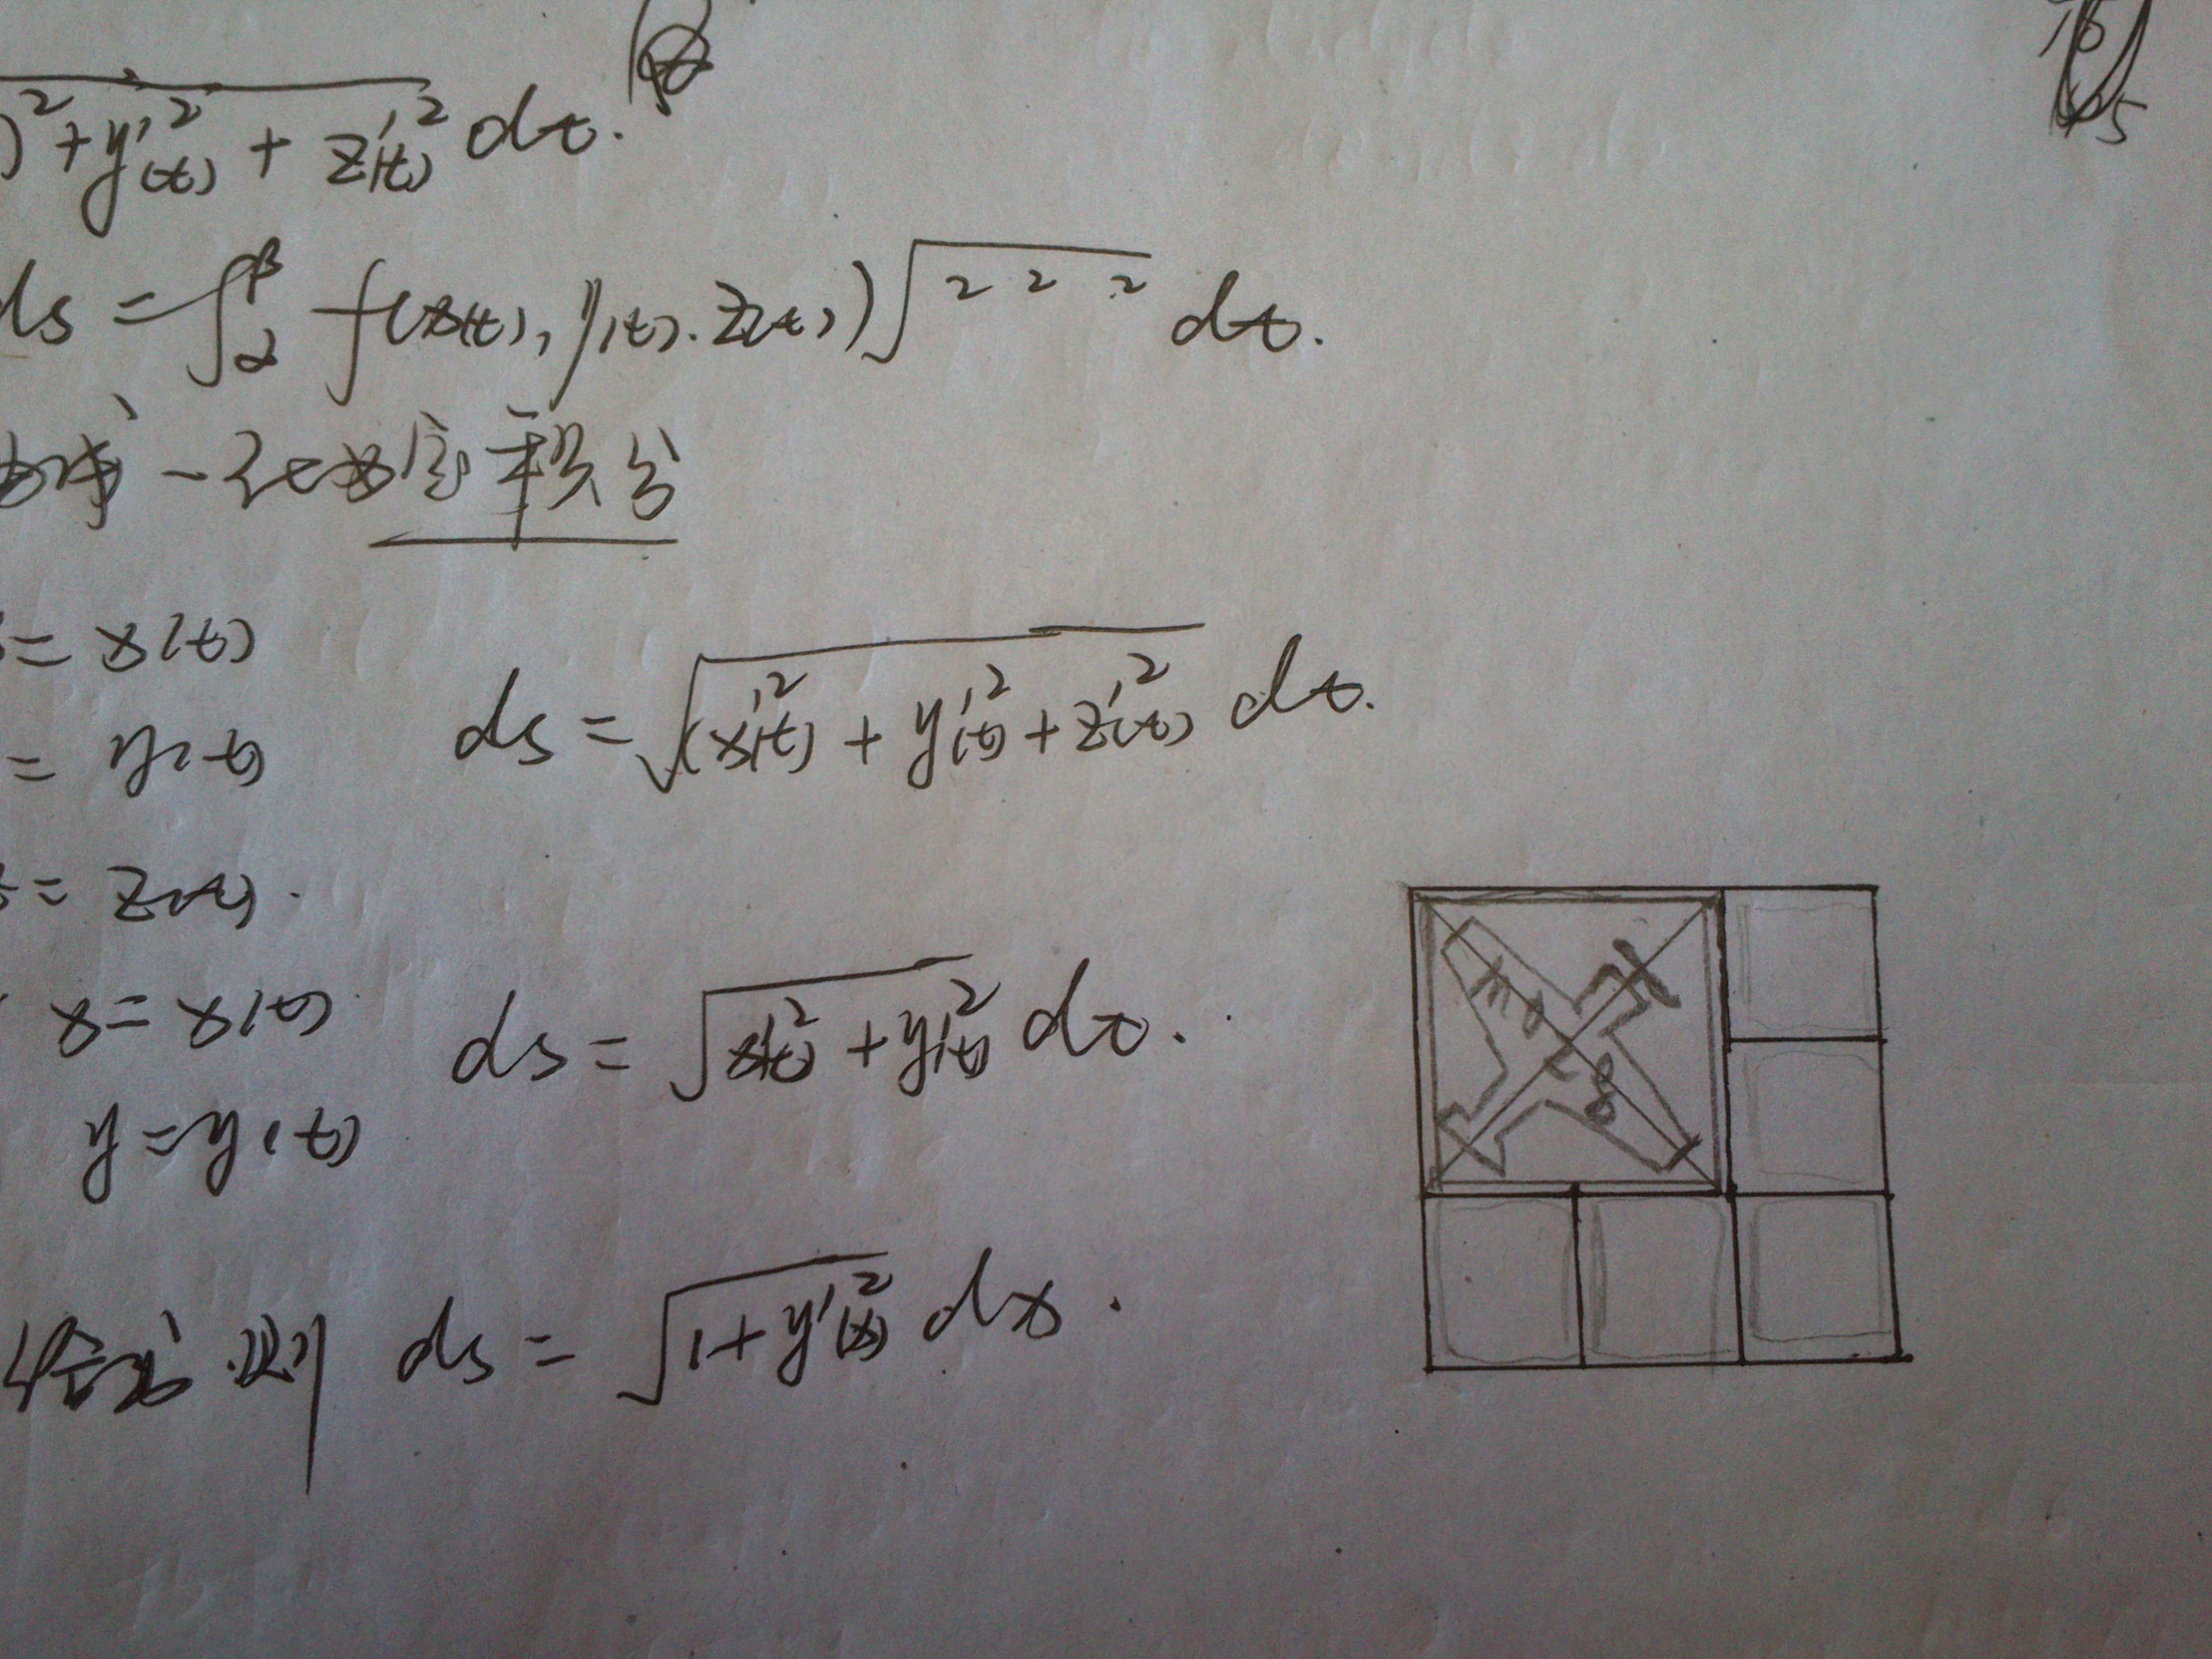 )²+y'²(t) + z'²(t) dt.
ds = ∫_α^β f(x(t), y(t), z(t))√ 2 2 2 dt.
定积分
= x(t)
= y(t)
ds = √(x'²(t) + y'²(t) + z'²(t) dt.
= z(t).
x = x(t)
ds = √x'²(t) + y'²(t) dt.
y = y(t)
则 ds = √1 + y'²(x) dx.